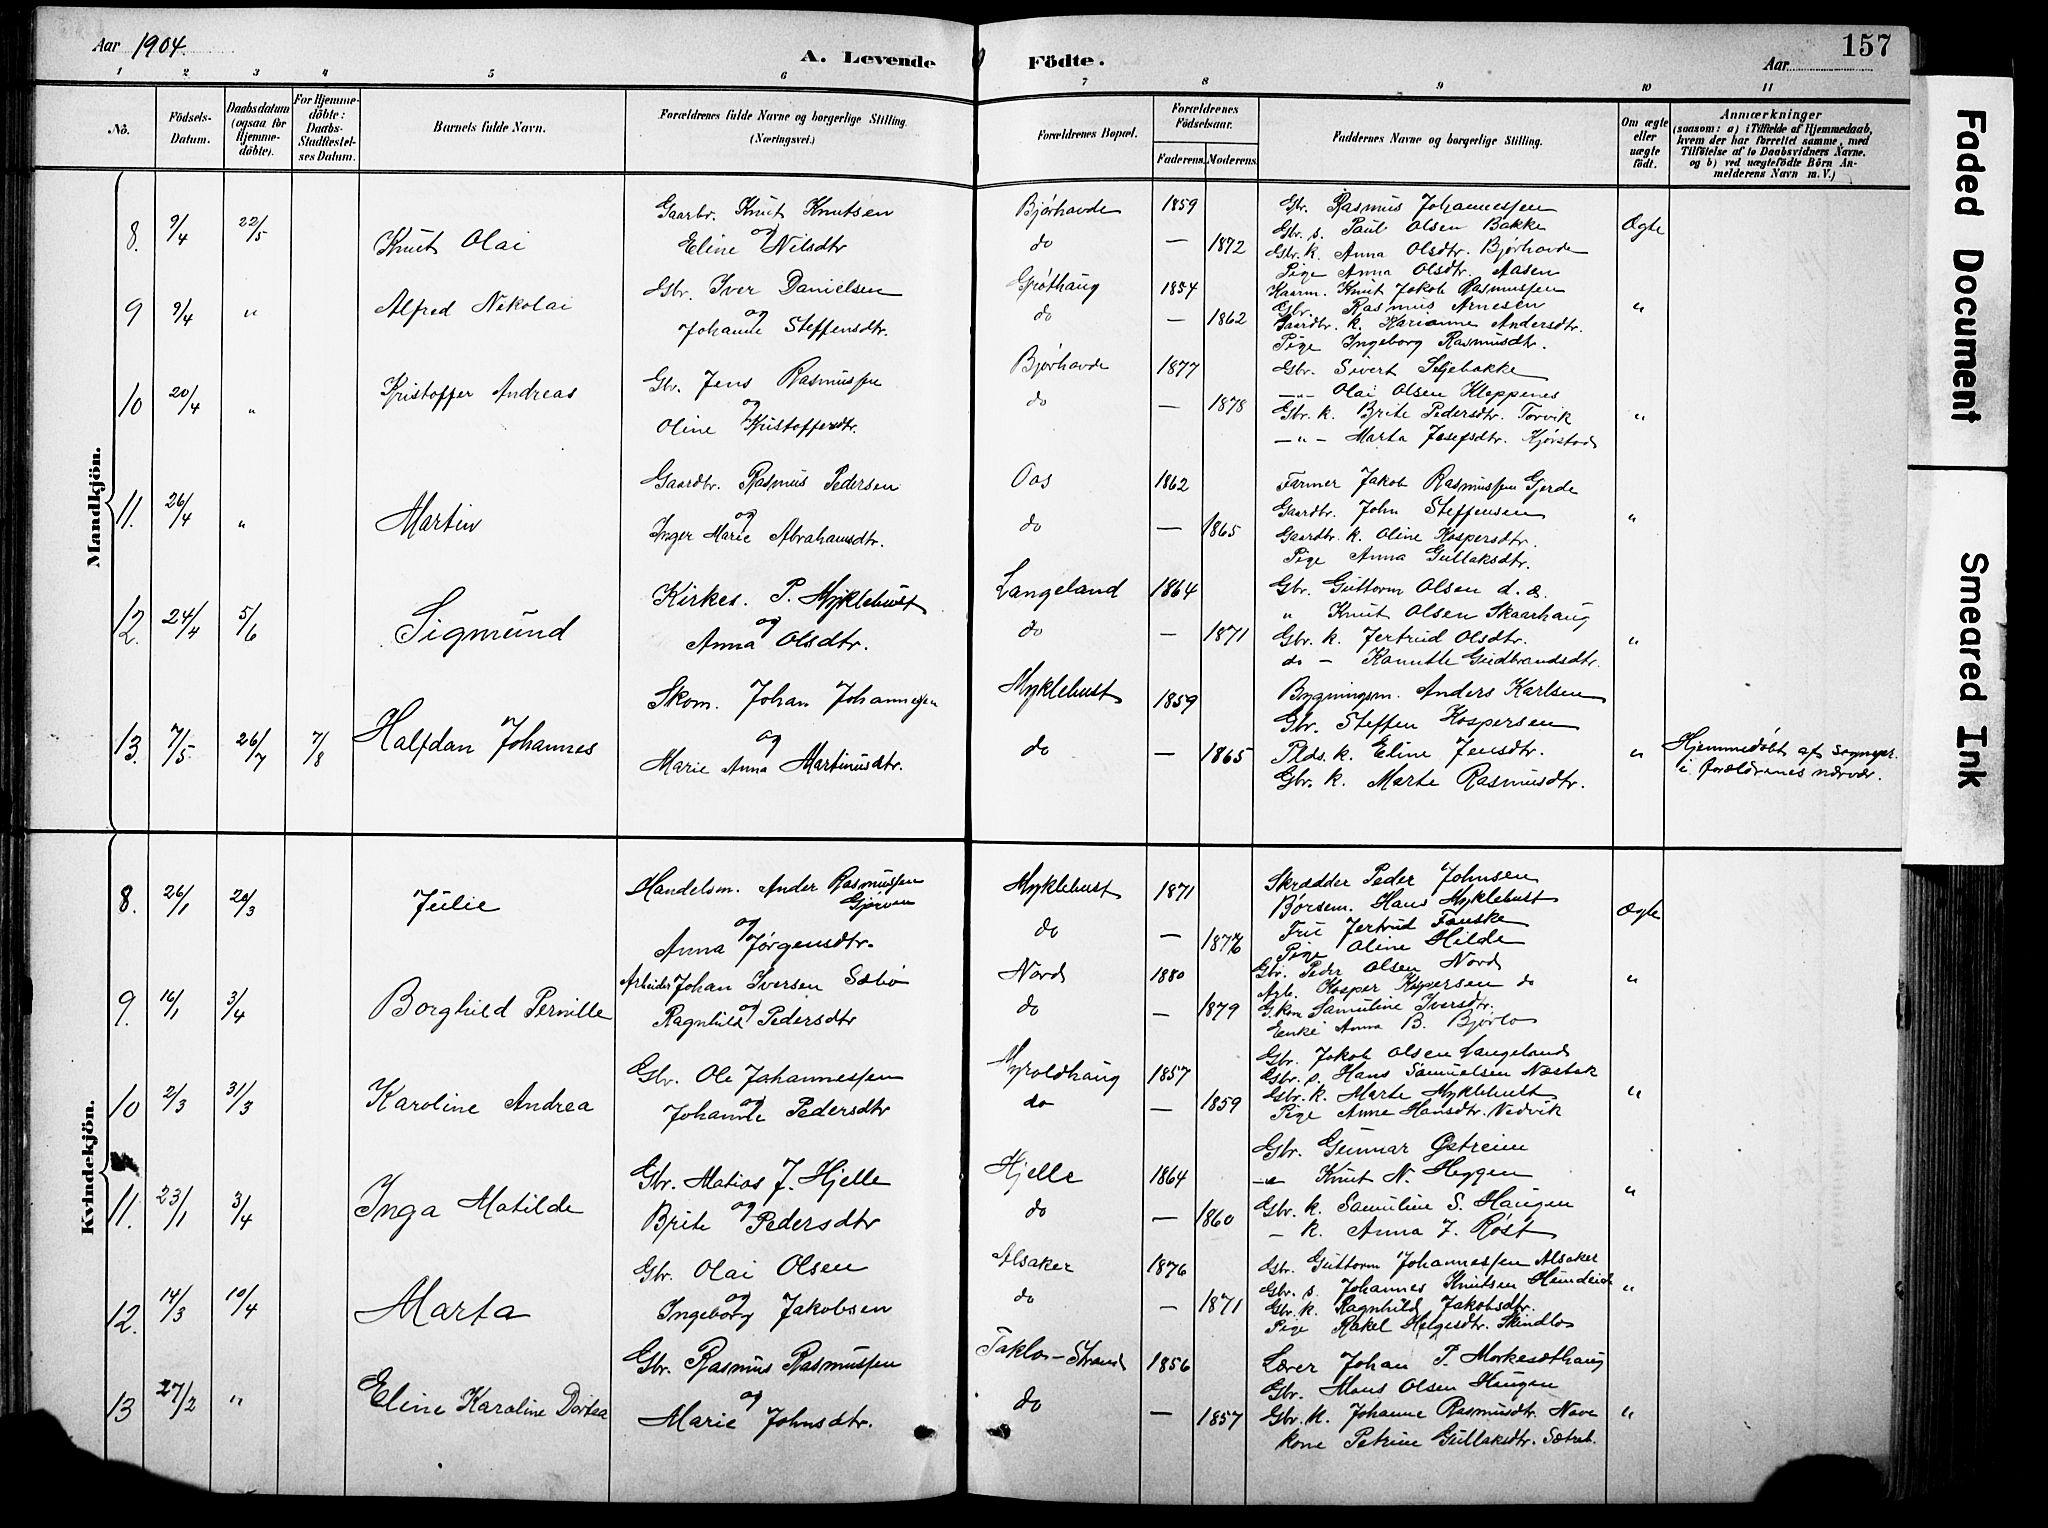 Aar 1904.
A. Levende Födte.
Aar
157
1 2 3 4 5 6 7 8 9 10 11
No.
Födsels-Datum.
Daabsdatum (ogsaa for Hjemme-döbte).
For Hjemme-döbte: Daabs-Stadfæstel-ses Datum.
Barnets fulde Navn.
Forældrenes fulde Navne og borgerlige Stilling. (Næringsvei.)
Forældrenes Bopæl.
Forældrenes Födselsaar.
Faderens. Moderens.
Faddernes Navne og borgerlige Stilling.
Om ægte eller uægte födt.
Anmærkninger (saasom: a) i Tilfælde af Hjemmedaab, hvem der har forrettet samme, med Tilföielse af to Daabsvidners Navne. og b) ved uægtefödte Börn An-melderens Navn m. V.)
Mandkjön.
8. 9/4 22/5 Knut Olai
Gaarbr. Knut Knutsen
og
Eline Nilsdtr
Bjørhovde 1859
do — 1872
Gbr. Rasmus Johannessen
Gbr. s. Paul Olsen Bakke
Gbr. k. Anna Olsdtr. Bjørhovde
Pige Anna Olsdtr. Aasen
Ægte
9 9/4 " Alfred Nikolai
Gbr. Iver Danielsen
og
Johanne Steffensdtr.
Grøthaug 1854
do — 1862
Kaarm. Knut Jakob Rasmussen
Gbr. Rasmus Arnesen
Gaardbr. k. Marianne Andersdtr.
Pige Ingeborg Rasmusdtr.
"
10 20/4 " Kristoffer Andreas
Gbr. Jens Rasmussen
og
Oline Kristoffersdtr.
Bjørhovde 1877
do — 1878
Gbr. Sivert Seljebakke
—"— Olai Olsen Kleppenes
Gbr. k. Brite Pedersdtr. Torvik
—"— Marta Josefsdtr. Kjørstad
"
11. 26/4 " Martin
Gaardbr. Rasmus Pedersen
og
Inger Marie Abrahamsdtr.
Oos 1862
do — 1865
Farmer Jakob Rasmussen Gjerde
Gaardbr. John Steffensen
Gaardbr. k. Oline Kaspersdtr.
Pige Anna Gullaksdtr.
"
12. 24/4 5/6 Sigmund
Kirkes. P. Myklebust
og
Anna Olsdtr.
Langeland 1864
do — 1871
Gbr. Guttorm Olsen d. æ.
" Knut Olsen Skaarhaug
Gbr. k. Jertrud Olsdtr.
do — Kanutte Gudbrandsdtr.
"
13. 7/5 26/7 7/8 Halfdan Johannes
Skom. Johan Johannesen
og
Marie Anna Martinusdtr.
Myklebust 1859
do — 1865
Bygningsm. Anders Karlsen
Gbr. Steffen Kaspersen
Plds. k. Eline Jensdtr.
Gbr. k. Marte Rasmusdtr.
"
Hjemmedøbt af sognepr.
i forældrenes nærvær.
Kvindekjön.
8. 26/1 20/3 Julie
Handelsm. Anders Rasmussen
Gjørven
og
Anna Jørgensdtr.
Myklebust 1871
do — 1876
Skrædder Peder Johnsen
Børsem. Hans Myklebust
Fru Jertrud Fauske
Pige Oline Hilde
Ægte
9. 16/1 3/4 Borghild Pernille
Arbeider Johan Iversen Sæbø
og
Ragnhild Pedersdtr
Nord 1880
do — 1879
Gbr. Peder Olsen Nord
Kasper Kaspersen do
G.kone Samueline Iversdtr.
Enke Anna B. Bjørlo
"
10 2/3 31/3 Karoline Andrea
Gbr. Ole Johannessen
og
Johanne Pedersdtr
Myroldhaug 1857
do — 1859
Gbr. Jakob Olsen Langeland
Gbr. s. Hans Samuelsen Næstak
Gbr. k. Marte Myklebust
Pige Anne Hansdtr. Nedvik
"
11. 23/1 3/4 Inga Matilde
Gbr. Matias J. Hjelle
og
Brite Pedersdtr
Hjelle 1864
do — 1860
Gbr. Gunnar Østreim
—"— Knut N. Heggen
Gbr. k. Samuline S. Haugen
— k. Anna J. Røst
"
12. 14/3 10/4 Marta
Gbr. Olai Olsen
og
Ingeborg Jakobsen
Alsaker 1876
do — 1871
Gbr. Guttorm Johannessen Alsaker
Gbr. s. Johannes Knutsen Heimdeide
Gbr. k. Ragnhild Jakobsdtr.
Pige Rakel Helgesdtr. Skindlo
"
13 27/2 " Eline Karoline Dortea
Gbr. Rasmus Rasmussen
og
Marie Johnsdtr.
Taklo-Strand 1856
do — 1857
Lærer Johan P. Morkesethaug
Gbr. Mons Olsen Haugen
Gbr. k. Johanne Rasmusdtr. Nave
kone Petrine Gullaksdtr. Sætreb.
"
Faded Document
Smeared Ink